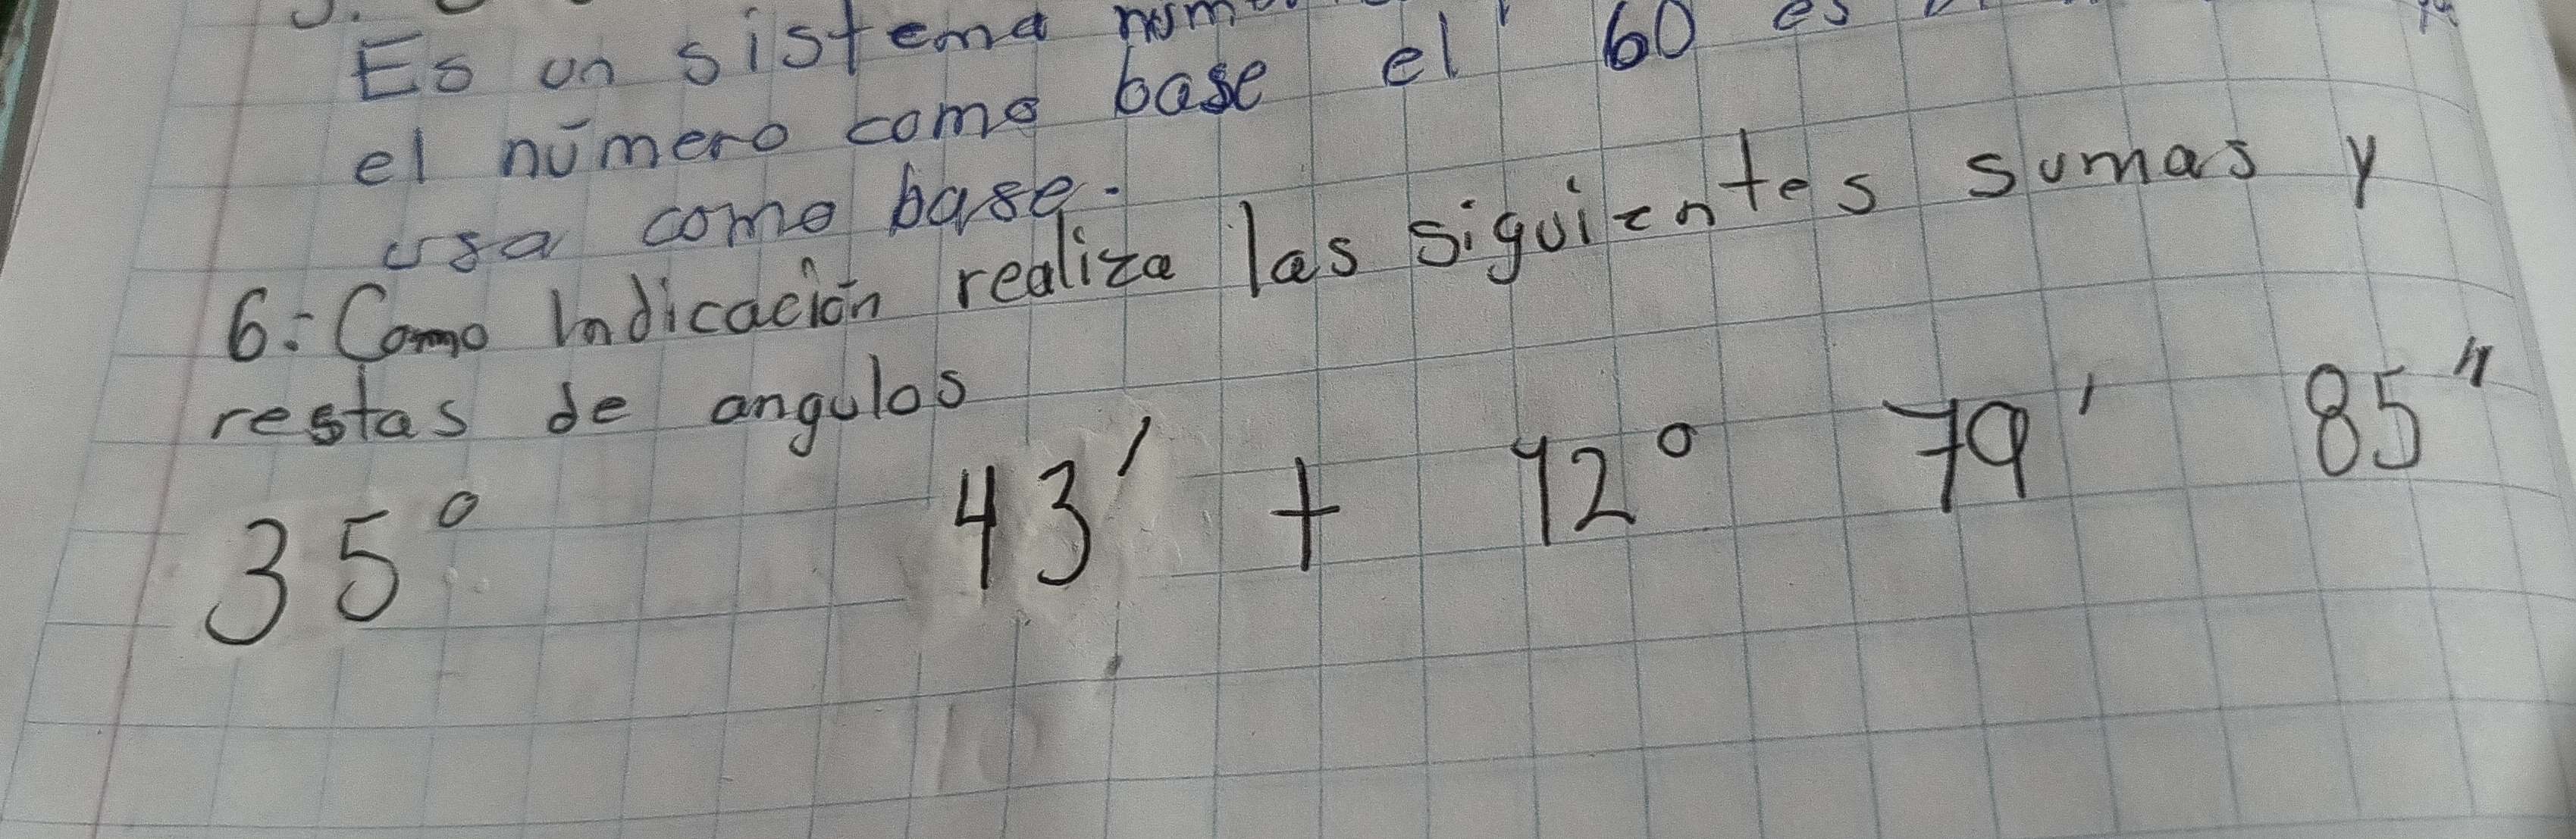 Es un sistema
el número como base el 60 es
usa como base.
6:- Como Indicación realiza las siguientes sumas y
restas de angulos
35° 43' + 12° 79' 85"